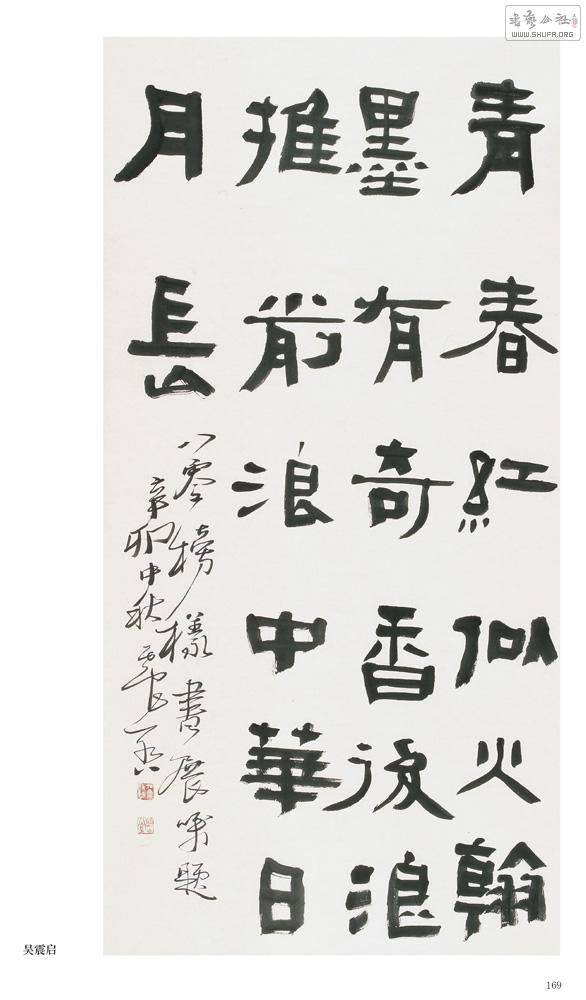 書艺公社
WWW.SHUFA.ORG
青春紅似火翰
墨有奇香後浪
推前浪中華日
月長
八零榜樣書展嘱題
辛卯中秋震启
吴震启
169